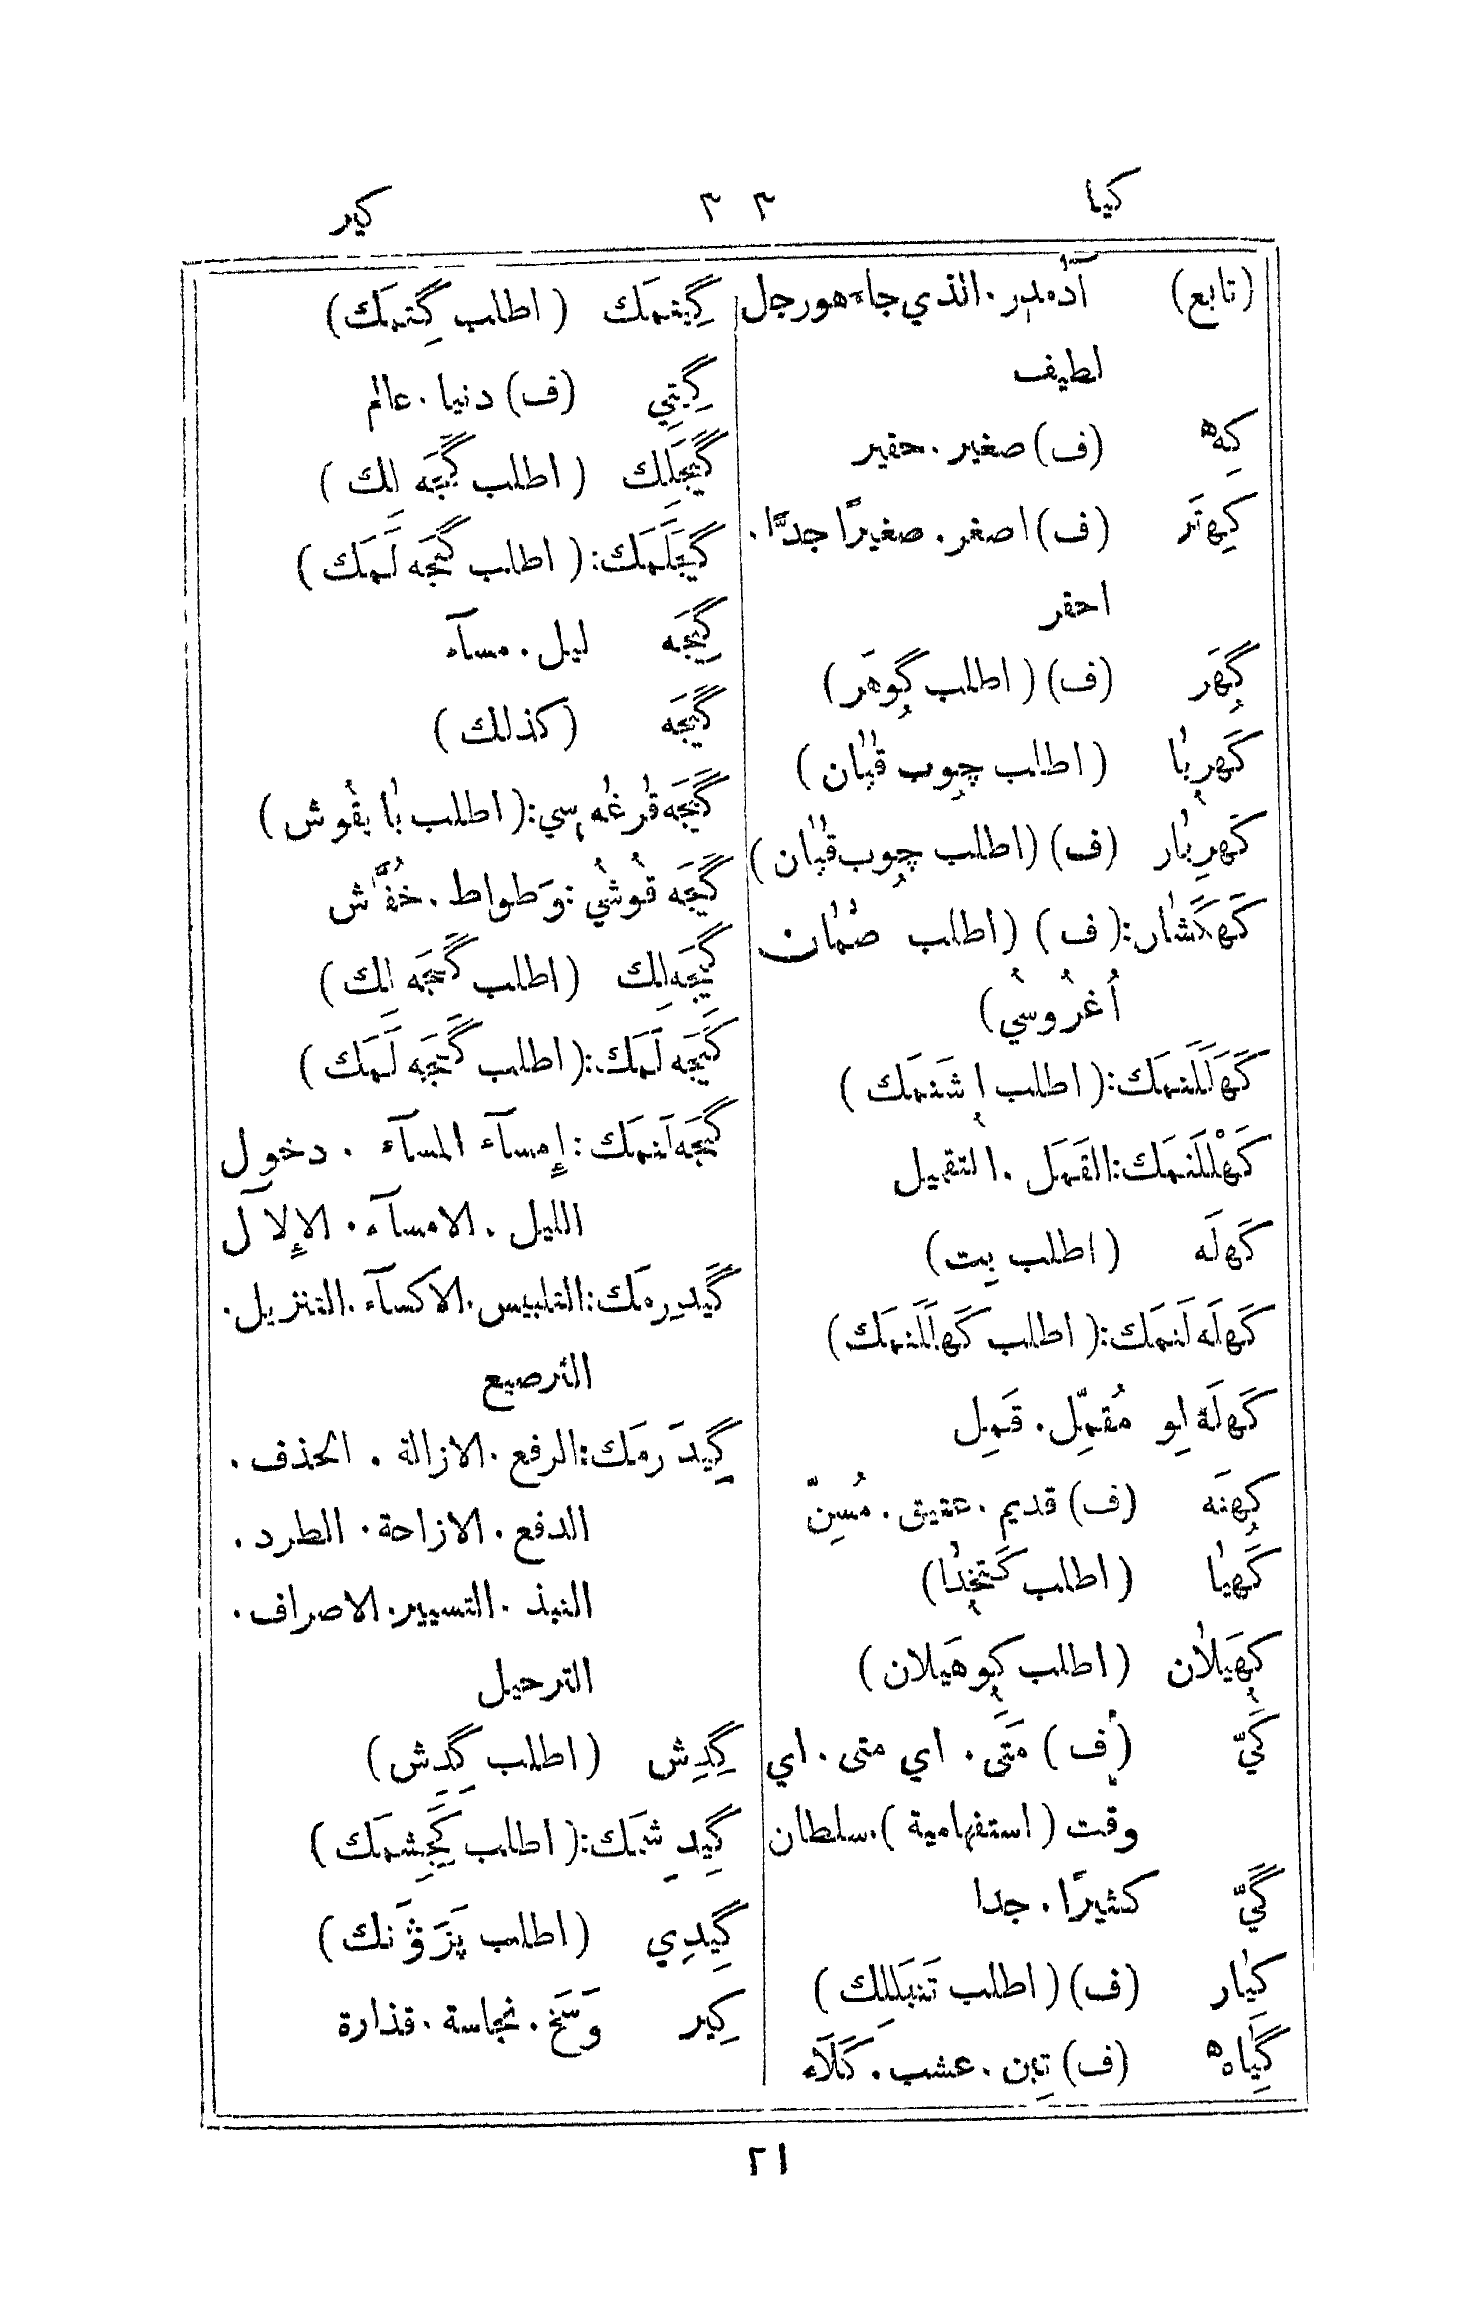 كيا
٣٣
كير
(تابع) آدٰمدر . الذي جاء هو رجل
لطيف
كِه (ف) صغير . حقير
كِهتَر (ف) اصغر . صغيرًا جدًّا .
احقر
گهَر (ف) (اطلب گوهَر)
كَهربٰا (اطلب چوب قپٰان)
كَهربٰار (ف) (اطلب چوب قپٰان)
كَهكَشٰان: (ف) (اطلب صٰمٰان
أُغروسي)
كَهَلَلَنمَك: (اطلب اشَنمَك)
كَهْلَلَنمَك: القَمَل . التقميل
كَهلَه (اطلب بِت)
كَهلَه لَنمَك: (اطلب كَهلَلَنمَك)
كَهلَه لِو مُقمِّل . قَمِل
كهنَه (ف) قديم . عتيق . مُسِنّ
كَهيٰا (اطلب كَتخدٰا)
كهَيلاٰن (اطلب كوهَيلان)
كَيّ (ف) مَتَى . اي متى . اي
وقت (استفهامية) . سلطان
گَيّ كثيرًا . جدا
كيٰار (ف) (اطلب تَنبَللِك)
گِيٰاه (ف) تِبن . عشب . كَلَآء
گِيتمَك (اطلب گِتمَك)
گِيتِي (ف) دنيا . عالم
گَيجَلِك (اطلب گَيجَه لِك)
گَيجَلَمَك: (اطلب گَيجَه لَمَك)
گِيجَه ليل . مسآء
گَيجَه (كذلك)
گَيجَه قٰرغٰه سي: (اطلب بٰايقوش)
گَيجَه قوشي: وَطواط . خُفَّاش
گَيجَه لِك (اطلب گَيجَه لِك)
گَيجَه لَمَك: (اطلب گَيجَه لَمَك)
گَيجَه لَنمَك: إمسآء المسآء . دخول
الليل . الامسآء . الإلآل
گَيدِرمَك: التلبيس . الاكسآء . التنزيل .
الترصيع
گِيدَرمَك: الرفع . الازالة . الحذف .
الدفع . الازاحة . الطرد .
النبذ . التسيير . الاصراف .
الترحيل
گِيدِش (اطلب گِدِش)
گِيدِشمَك: (اطلب گَجِشمَك)
گِيدِي (اطلب پَزَوَنك)
كِير وَسَخ . نجاسة . قذارة
٢١